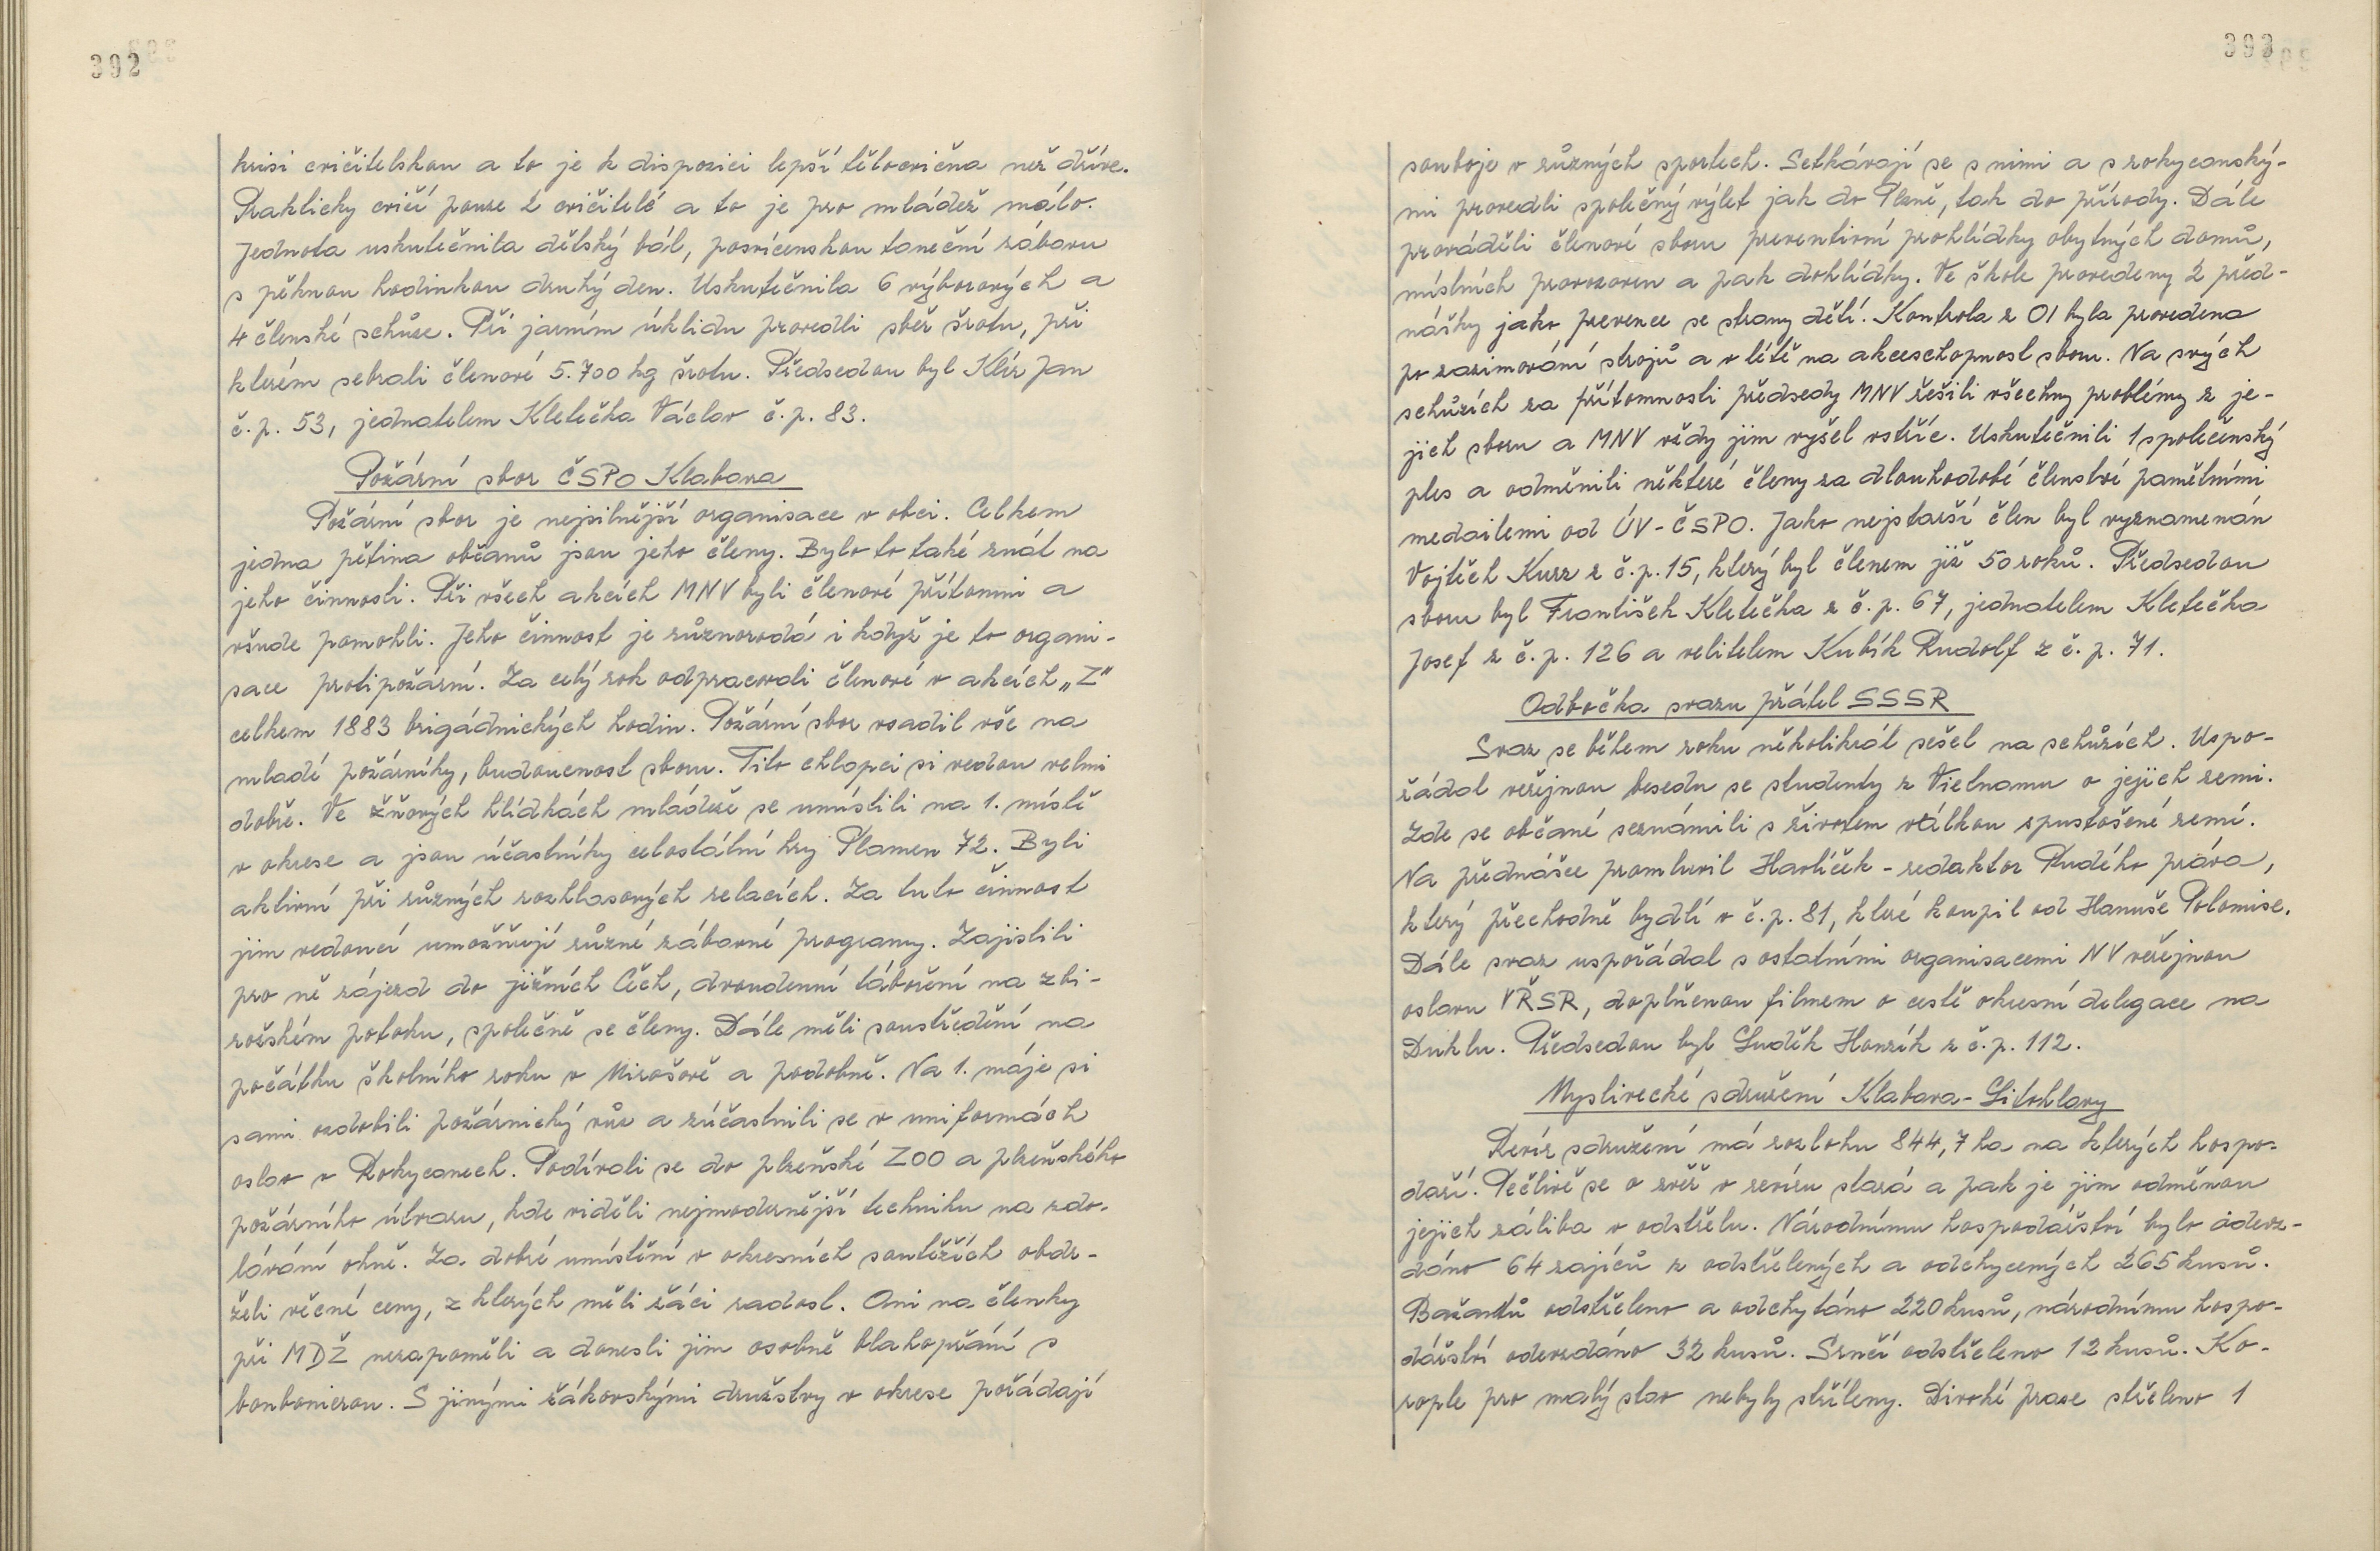 392
krisi cvičitelskou a to je k dispozici lepší tělocvična než dříve.
Prakticky cvičí pouze 2 cvičitelé a to je pro mládež málo.
Jednota uskutečnila dětský bál, posvícenskou taneční zábavu
s pěknou hodinkou druhý den. Uskutečnila 6 výborových a
4 členské schůze. Při jarním úklidu provedli sběr šrotu, při
kterém sebrali členové 5.700 kg šrotu. Předsedou byl Klír Jan
č.p. 53, jednatelem Kletečka Václav č.p. 83.
Požární sbor ČSPO Klabava
Požární sbor je nejsilnější organisace v obci. Celkem
jedna pětina občanů jsou jeho členy. Bylo to také znát na
jeho činnosti. Při všech akcích MNV byli členové přítomni a
všude pomohli. Jeho činnost je různorodá i když je to organi-
sace protipožární. Za celý rok odpracovali členové v akcích „Z"
celkem 1883 brigádnických hodin. Požární sbor vsadil vše na
mladé požárníky, budoucnost sboru. Tito chlapci si vedou velmi
dobře. Ve žňových hlídkách mládeže se umístili na 1. místě
v okrese a jsou účastníky celostátní hry Plamen 72. Byli
aktivní při různých rozhlasových relacích. Za tuto činnost
jim vedoucí umožňují různé zábavné programy. Zajistili
pro ně zájezd do jižních Čech, dvoudenní táboření na zbi-
rožském potoku, společně se členy. Dále měli soustředění na
počátku školního roku v Mirošově a podobně. Na 1. máje si
sami ozdobili požárnický vůz a zúčastnili se v uniformách
oslav v Rokycanech. Podívali se do plzeňské ZOO a plzeňského
požárního útvaru, kde viděli nejmodernější techniku na zdo-
lávání ohně. Za dobré umístění v okresních soutěžích obdr-
želi věcné ceny, z kterých měli žáci radost. Ani na členky
při MDŽ nezapoměli a donesli jim osobně blahopřání s
bonbonierou. S jinými žákovskými družstvy v okrese pořádají
393
souboje v různých sportech. Setkávají se s nimi a s rokycanský-
mi provedli společný výlet jak do Plzně, tak do přírody. Dále
prováděli členové sboru preventivní prohlídky obytných domů,
místních provozoven a pak dohlídky. Ve škole provedeny 2 před-
nášky jako prevence se strany dětí. Kontrola z OI byla provedena
po zazimování strojů a v létě na akceschopnost sboru. Na svých
schůzích za přítomnosti předsedy MNV řešili všechny problémy z je-
jich sboru a MNV vždy jim vyšel vstříc. Uskutečnili 1 společenský
ples a odměnili některé členy za dlouhodobé členství pamětními
medailemi od ÚV-ČSPO. Jako nejstarší člen byl vyznamenán
Vojtěch Kurz z č.p. 15, který byl členem již 50 roků. Předsedou
sboru byl František Kletečka z č.p. 67, jednatelem Kletečka
Josef z č.p. 126 a velitelem Kubík Rudolf z č.p. 71.
Odbočka svazu přátel SSSR
Svaz se během roku několikrát sešel na schůzích. Uspo-
řádal veřejnou besedu se studenty z Vietnamu o jejich zemi.
Zde se občané seznámili s životem válkou zpustošené zemí.
Na přednášce promluvil Havlíček - redaktor Rudého práva,
který přechodně bydlí v č.p. 81, které koupil od Hanuše Polomise.
Dále svaz uspořádal s ostatními organisacemi NV veřejnou
oslavu VŘSR, doplněnou filmem o cestě okresní delegace na
Duklu. Předsedou byl Luděk Honzík z č.p. 112.
Myslivecké sdružení Klabava-Litohlavy
Revír sdružení má rozlohu 844,7 ha na kterých hospo-
daří. Pečlivě se o zvěř v revíru stará a pak je jim odměnou
jejich záliba v odstřelu. Národnímu hospodářství bylo odevz-
dáno 64 zajíců z odstřelených a odchycených 265 kusů.
Bažantů odstřeleno a odchytáno 220 kusů, národnímu hospo-
dářství odevzdáno 32 kusů. Srnčí odstřeleno 12 kusů. Ko-
rople pro malý stav nebyly stříleny. Divoké prase střeleno 1